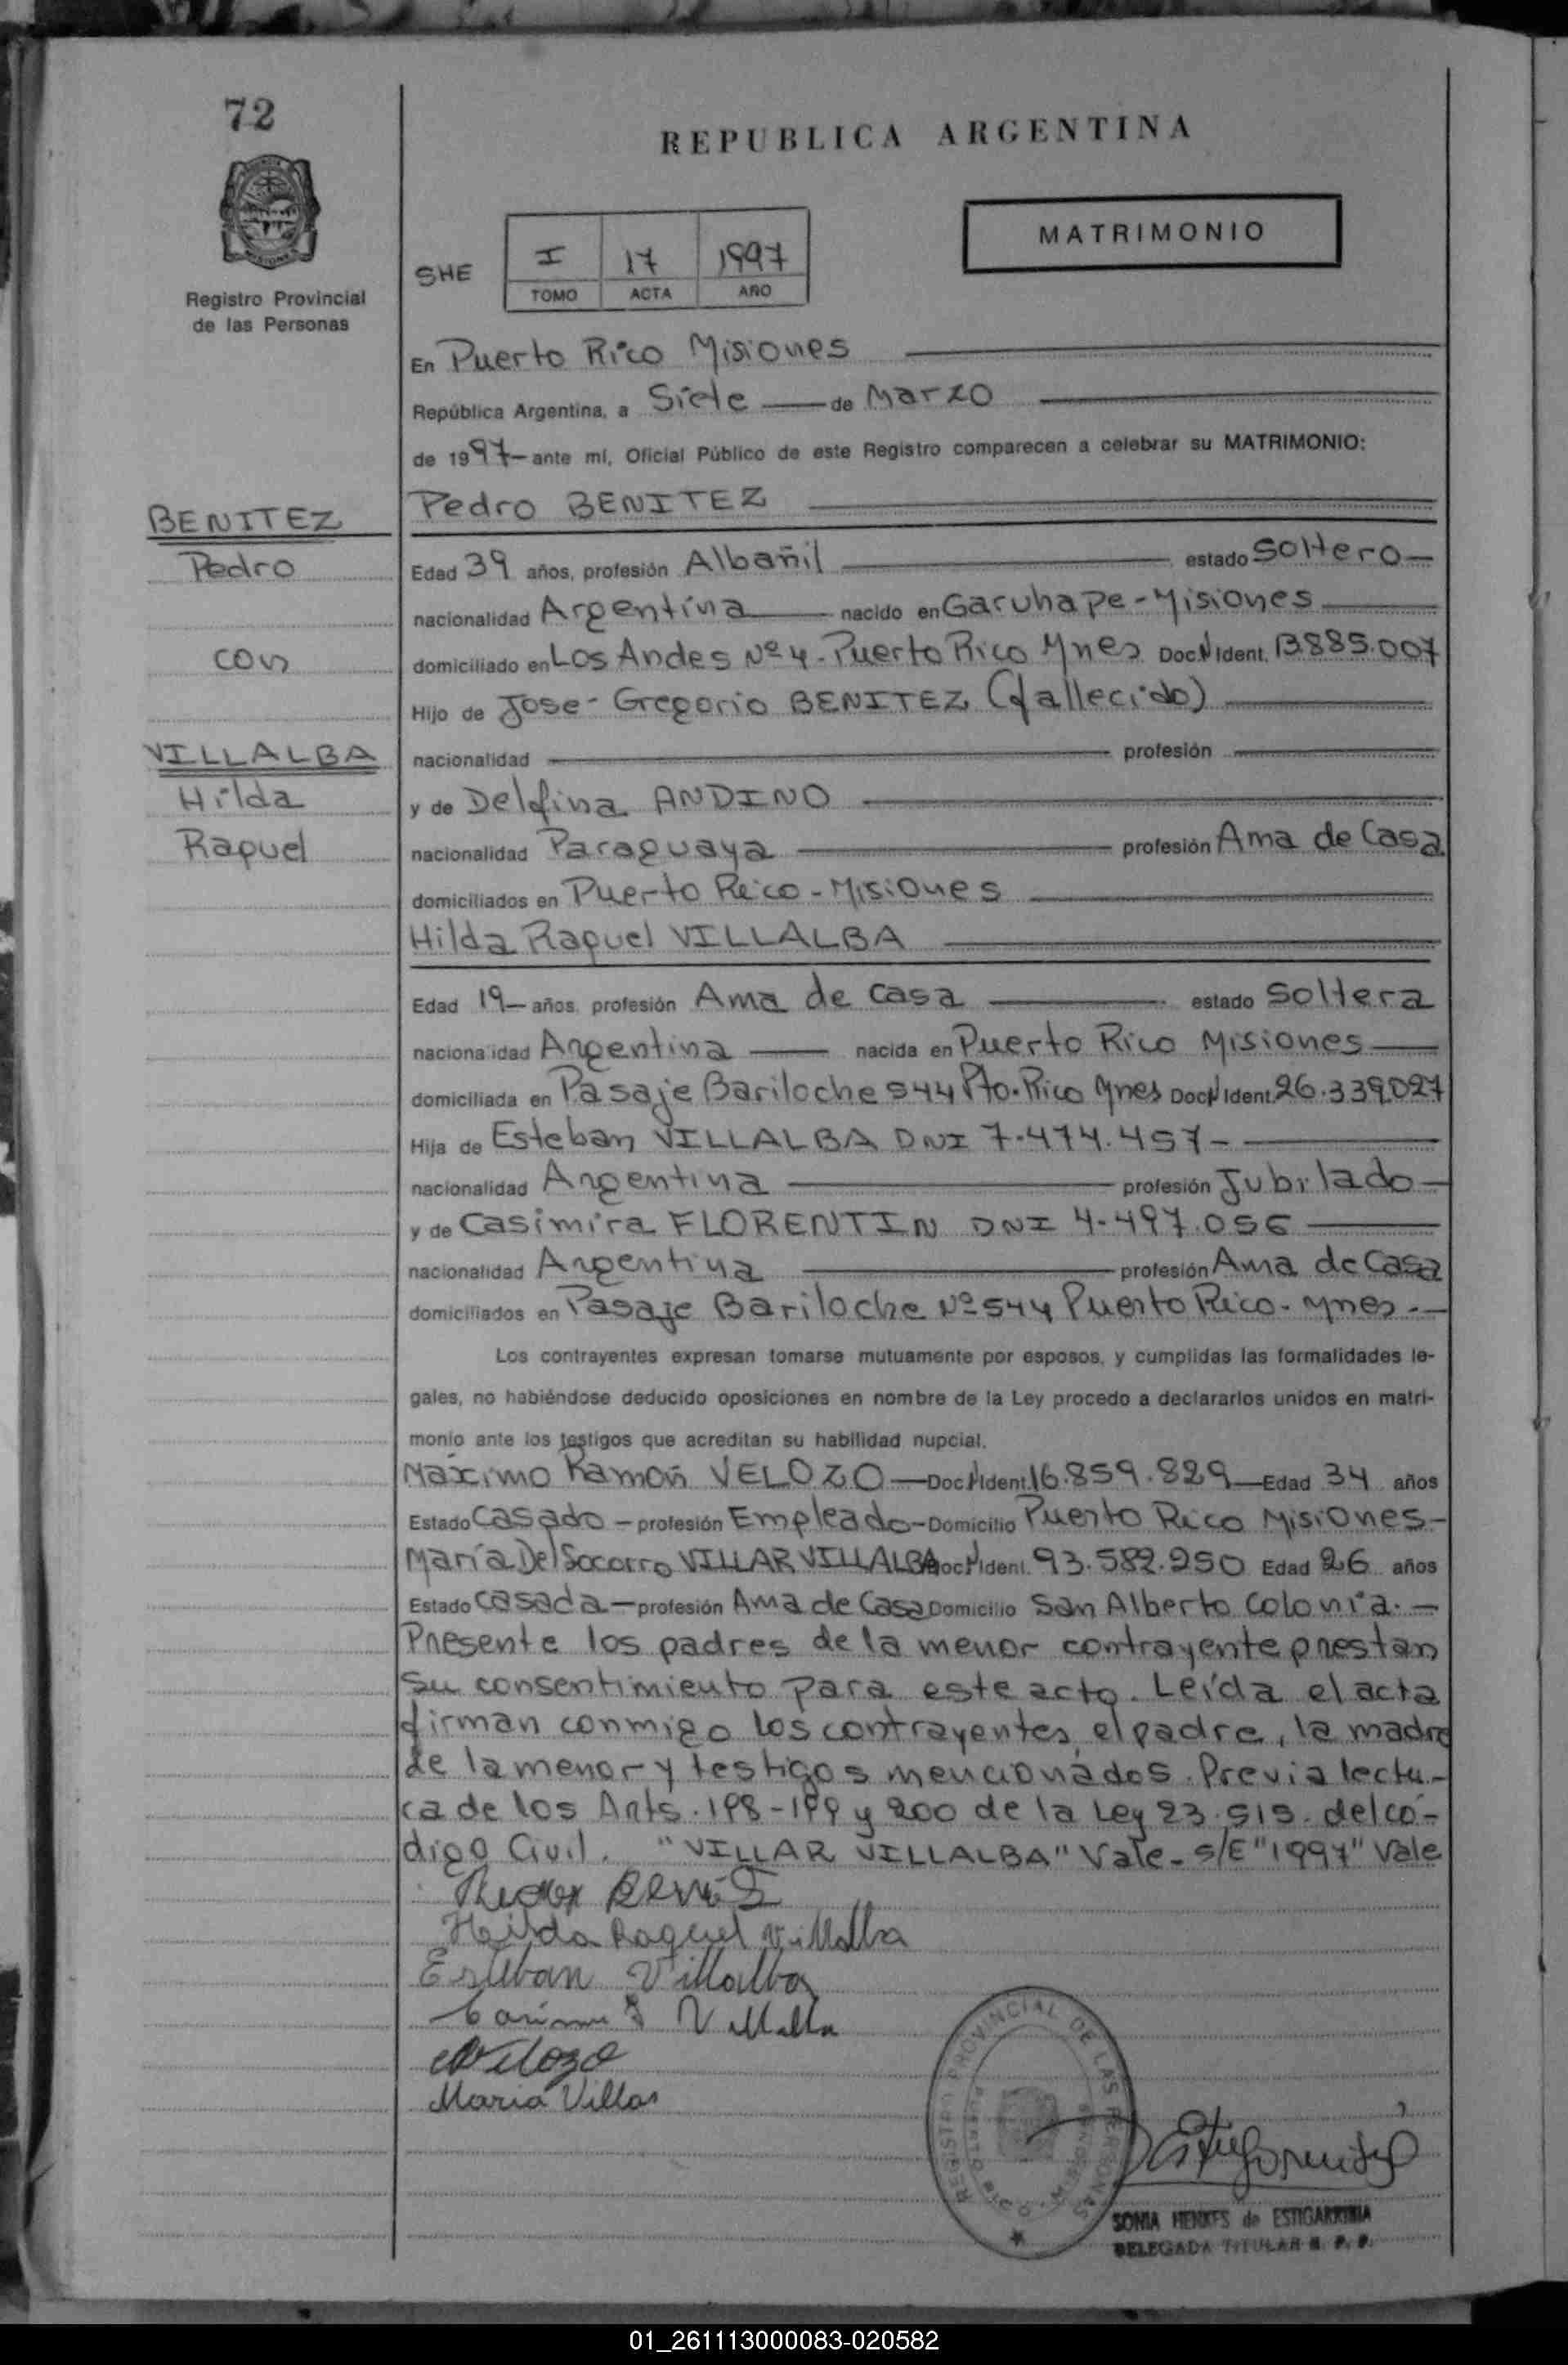 72
REPUBLICA ARGENTINA
MATRIMONIO
Registro Provincial
de las Personas
SHE
I 17 1997
TOMO ACTA AÑO
En Puerto Rico Misiones
República Argentina, a Siete de Marzo
de 1997 ante mí, Oficial Público de este Registro comparecen a celebrar su MATRIMONIO:
BENITEZ
Pedro
con
VILLALBA
Hilda
Raquel
Pedro BENITEZ
Edad 39 años, profesión Albañil estado Soltero
nacionalidad Argentina nacido en Garuhape - Misiones
domiciliado en Los Andes Nº 4 - Puerto Rico Mnes Doc. N Ident. 13.885.007
Hijo de Jose Gregorio BENITEZ (fallecido)
nacionalidad profesión
y de Delfina ANDINO
nacionalidad Paraguaya profesión Ama de Casa
domiciliados en Puerto Rico - Misiones
Hilda Raquel VILLALBA
Edad 19 años, profesión Ama de Casa estado Soltera
nacionalidad Argentina nacida en Puerto Rico Misiones
domiciliada en Pasaje Bariloche 544 Pto. Rico Mnes Doc. N Ident. 26.339.027
Hija de Esteban VILLALBA DNI 7.474.457 -
nacionalidad Argentina profesión Jubilado
y de Casimira FLORENTIN DNI 4.497.056
nacionalidad Argentina profesión Ama de Casa
domiciliados en Pasaje Bariloche Nº 544 Puerto Rico - Mnes -
Los contrayentes expresan tomarse mutuamente por esposos, y cumplidas las formalidades le-
gales, no habiéndose deducido oposiciones en nombre de la Ley procedo a declararlos unidos en matri-
monio ante los testigos que acreditan su habilidad nupcial.
Máximo Ramón VELOZO Doc. N Ident. 16.859.829 Edad 34 años
Estado Casado profesión Empleado Domicilio Puerto Rico Misiones
María Del Socorro VILLAR VILLALBA Doc. N Ident. 93.582.250 Edad 26 años
Estado casada profesión Ama de Casa Domicilio San Alberto Colonia. -
Presente los padres de la menor contrayente prestan
su consentimiento para este acto. Leída el acta
firman conmigo los contrayentes, el padre, la madre
de la menor y testigos mencionados. Previa lectu-
ra de los Arts. 198-199 y 200 de la Ley 23.515. del có-
digo Civil. "VILLAR VILLALBA" Vale - S/E "1997" Vale
Hilda Raquel Villalba
Esteban Villalba
Villalba
Velozo
Maria Villar
REGISTRO PROVINCIAL DE LAS PERSONAS
SONIA HENKES de ESTIGARRIBIA
DELEGADA TITULAR R. P. P.
01_261113000083-020582